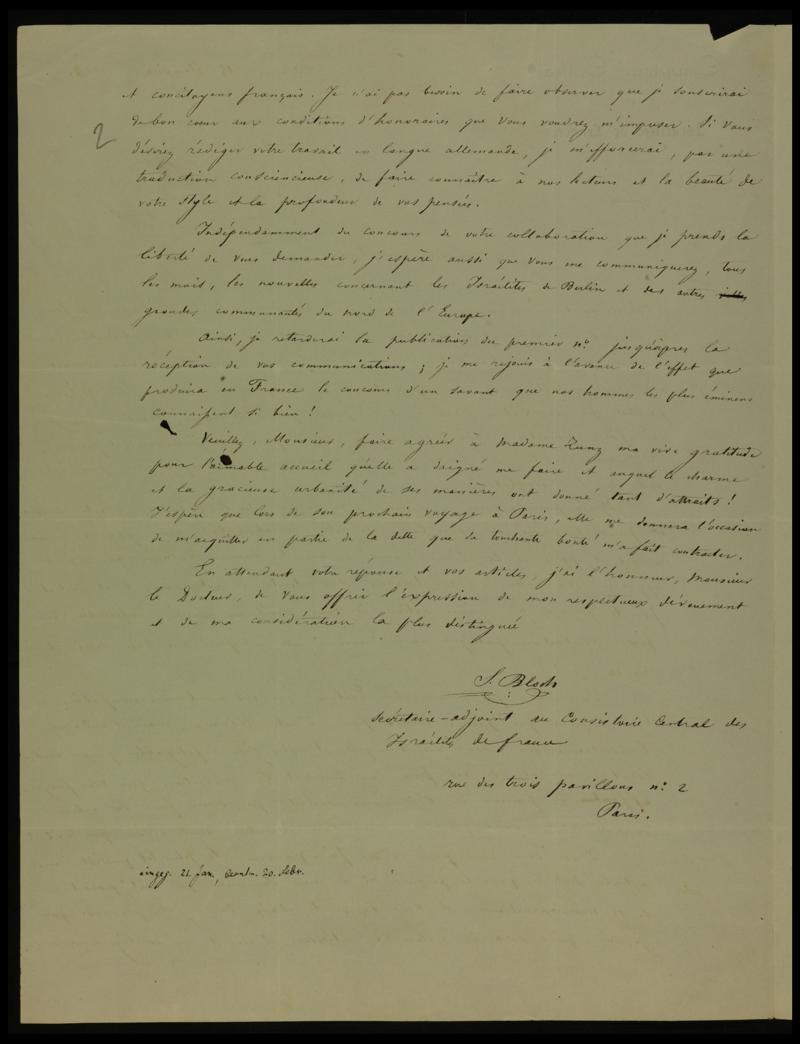 et concitoyens français. Je n'ai pas besoin de faire observer que je souscrirai
de bon cœur aux conditions d'honoraires que Vous voudrez m'imposer. Si Vous
désiriez rédiger votre travail en langue allemande, je m'efforcerai, par une
traduction consciencieuse, de faire connaître à nos lecteurs et la beauté de
votre style et la profondeur de vos pensées.
Indépendamment du concours de votre collaboration que je prends la
liberté de vous demander, j'espère aussi que Vous me communiquerez, tous
les mois, les nouvelles concernant les Israélites de Berlin et des autres villes
grandes communautés du nord de l'Europe.
Ainsi, je retarderai la publication du premier n.o jusqu'après la
réception de vos communications ; je me rejouis à l'avance de l'effet que
produira en France le concours d'un savant que nos hommes les plus éminens
connaissent si bien !
Veuillez, Monsieur, faire agréer à Madame Zunz ma vive gratitude
pour l'aimable accueil qu'elle a daigné me faire et auquel le charme
et la gracieuse urbanité de ses manières ont donné tant d'attraits !
J'espère que lors de son prochain voyage à Paris, elle me donnera l'occasion
de m'acquitter en partie de la dette que sa touchante bonté m'a fait contracter.
En attendant votre réponse et vos articles, j'ai l'honneur, Monsieur
le Docteur, de Vous offrir l'expression de mon respectueux dévouement
et de ma considération la plus distinguée
S. Bloch
Secrétaire-adjoint au Consistoire Central des
Israélites de france
rue des trois pavillons n.o 2
Paris.
eingeg. 21. Jan., beantw. 20. Febr.
2